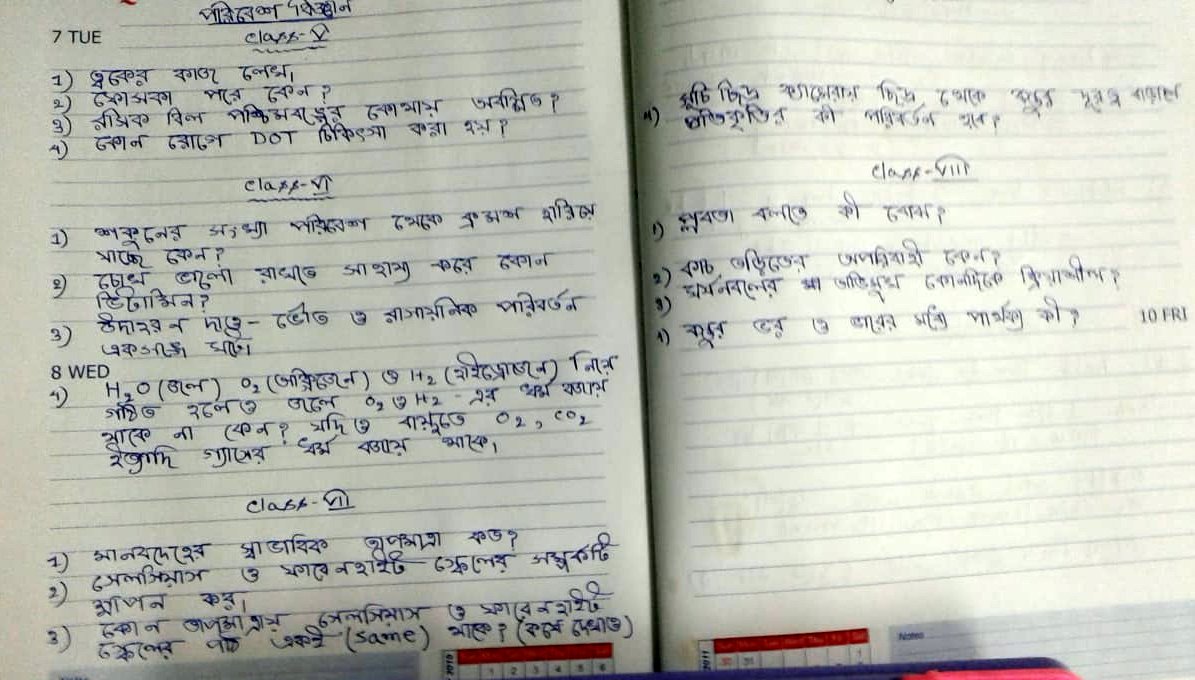 পরিবেশ বিজ্ঞান
7 TUE
class-V
1) ত্বকের কাজ লেখ।
2) ফোসকা পরে কেন?
3) রসিক বিল পশ্চিমবঙ্গের কোথায় অবস্থিত?
4) কোন রোগে DOT চিকিৎসা করা হয়?
class-VI
1) শকুনের সংখ্যা পরিবেশ থেকে ক্রমশ হারিয়ে
যাচ্ছে কেন?
2) চোখ ভালো রাখতে সাহায্য করে কোন
ভিটামিন?
3) উদাহরন দাও - ভৌত ও রাসায়নিক পরিবর্তন
একসঙ্গে ঘটে।
8 WED
4) H2O (জল) O2 (অক্সিজেন) ও H2 (হাইড্রোজেন) নিয়ে
গঠিত হলেও জলে O2 ও H2 - এর ধর্ম বজায়
থাকে না কেন? যদিও বায়ুতে O2, CO2
ইত্যাদি গ্যাসের ধর্ম বজায় থাকে।
class-VII
1) মানবদেহের স্বাভাবিক তাপমাত্রা কত?
2) সেলসিয়াস ও ফারেনহাইট স্কেলের সম্পর্কটি
স্থাপন কর।
3) কোন তাপমাত্রায় সেলসিয়াস ও ফারেনহাইট
স্কেলের পাঠ একই (same) থাকে? (কষে দেখাও)
4) সূচি ছিদ্র ক্যামেরায় ছিদ্র থেকে বস্তুর দূরত্ব বাড়ালে
প্রতিকৃতির কী পরিবর্তন হবে?
class-VIII
1) প্লবতা বলতে কী বোঝ?
2) কাচ তড়িতের অপরিবাহী কেন?
3) ঘর্ষনবলের অভিমুখ কোনদিকে ক্রিয়াশীল?
4) বস্তুর ভর ও ভারের মধ্যে পার্থক্য কী?
10 FRI
Notes
2010
1 2 3 4 5 6
2011
30 31
1